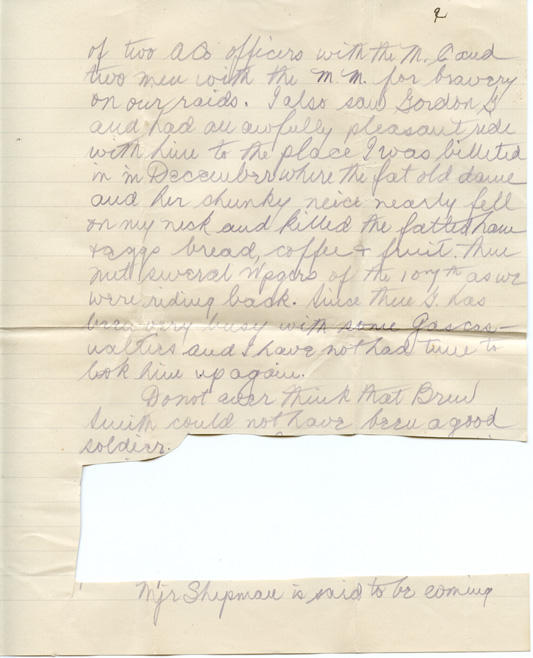 2
of two A Co officers with the M. C and
two men with the M M. for bravery
on our raids. I also saw Gordon G
and had an awfully pleasant ride
with him to the place I was billeted
in in December where the fat old dame
and her chunky neice nearly fell
on my neck and killed the fatted ham
+ eggs bread, coffee + fruit. Then
met several Wpgers of the 107th as we
were riding back. Since then G has
been very busy with some Gas cas-
ualties and I have not had time to
look him up again.
Do not ever think that
Smith could not have been a good
soldier.
Mjr Shipman is said to be coming